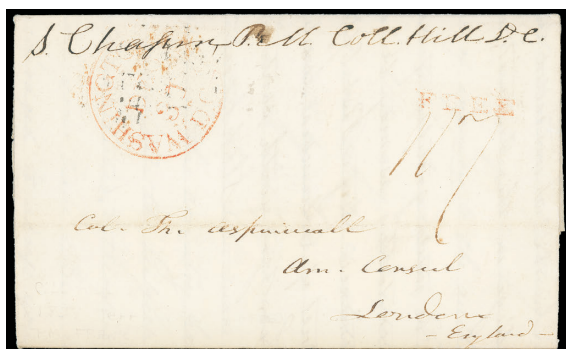 S. Chapin P.M. Coll. Hill D.C.
WASHINGTON D.C.
FREE
Col. Th. Aspinwall
Am. Consul
London
- England -